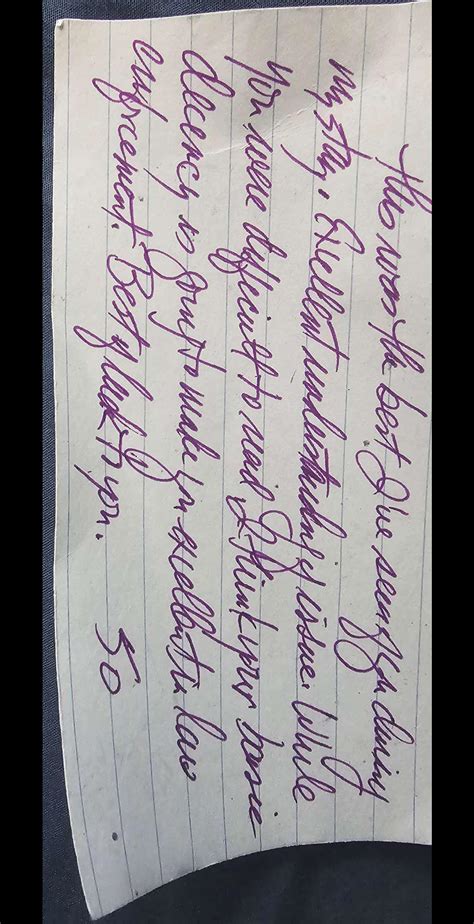 this was the best I've seen of you during
my stay. Excellent understanding of issue. While
you were difficult to read I think your basic
decency is going to make you excellent in law
enforcement. Best of luck to you.
50